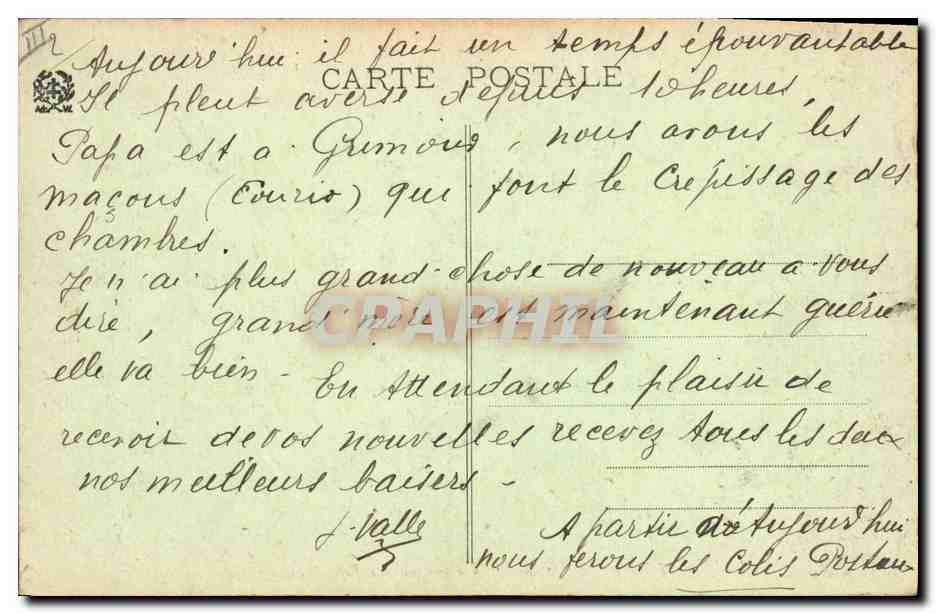 III
2/ Aujourd'hui il fait un temps épouvantable
CARTE POSTALE
Il pleut averse depuis 10 heures,
Papa est a Grimoud, nous avons les
maçons (Courio) qui font le crépissage des
chambres.
Je n'ai plus grand chose de nouveau a vous
dire, grand'mère est maintenant guérie
CPAPHIL
elle va bien - En attendant le plaisir de
recevoir de vos nouvelles recevez tous les deux
nos meilleurs baisers -
J. Valle
A partir de Aujourd'hui
nous ferons les Colis Postaux